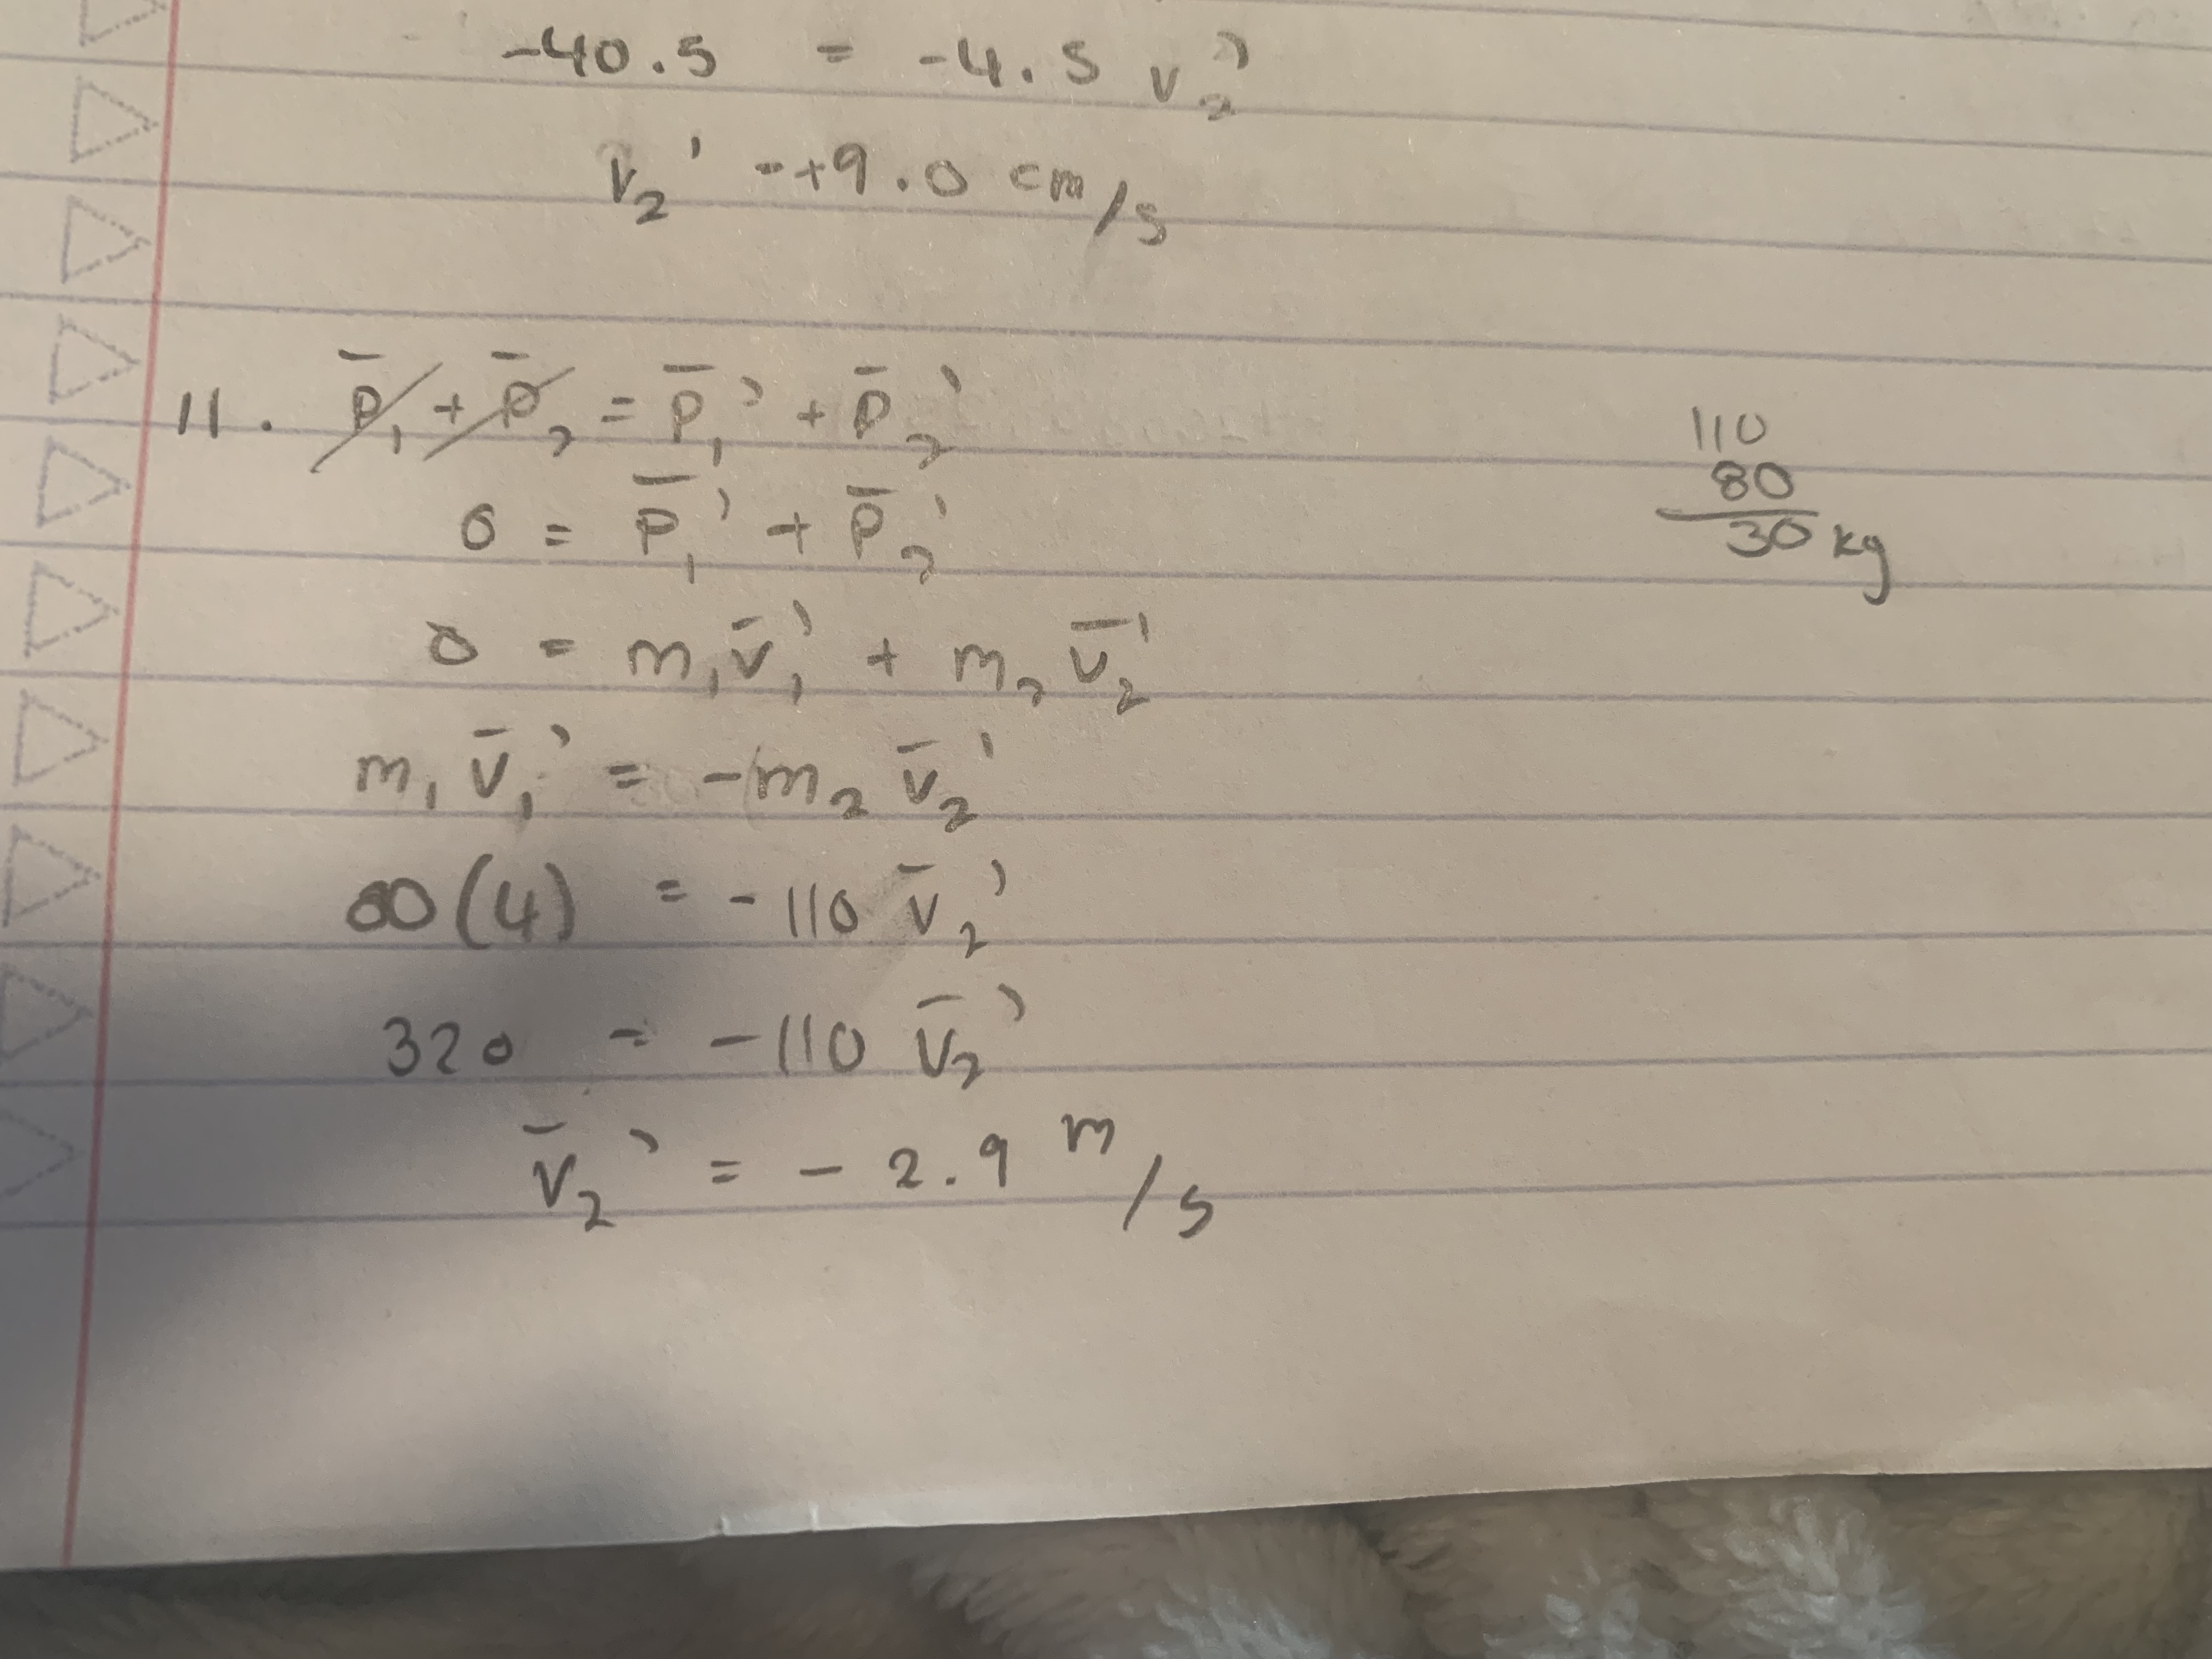 -40.5 = -4.5 v₂'
v₂' = +9.0 cm/s
11. p̄₁ + p̄₂ = p̄₁' + p̄₂'
0 = p̄₁' + p̄₂'
0 = m₁v̄₁' + m₂v̄₂'
m₁v̄₁' = -m₂v̄₂'
80(4) = -110 v̄₂'
320 = -110 v̄₂'
v̄₂' = -2.9 m/s
110
80
30 kg